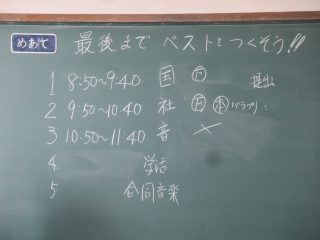 めあて 最後まで ベストをつくそう!!
1 8:50〜9:40 国 提出
2 9:50〜10:40 社
3 10:50〜11:40 音
4. 学活
5 合同音楽